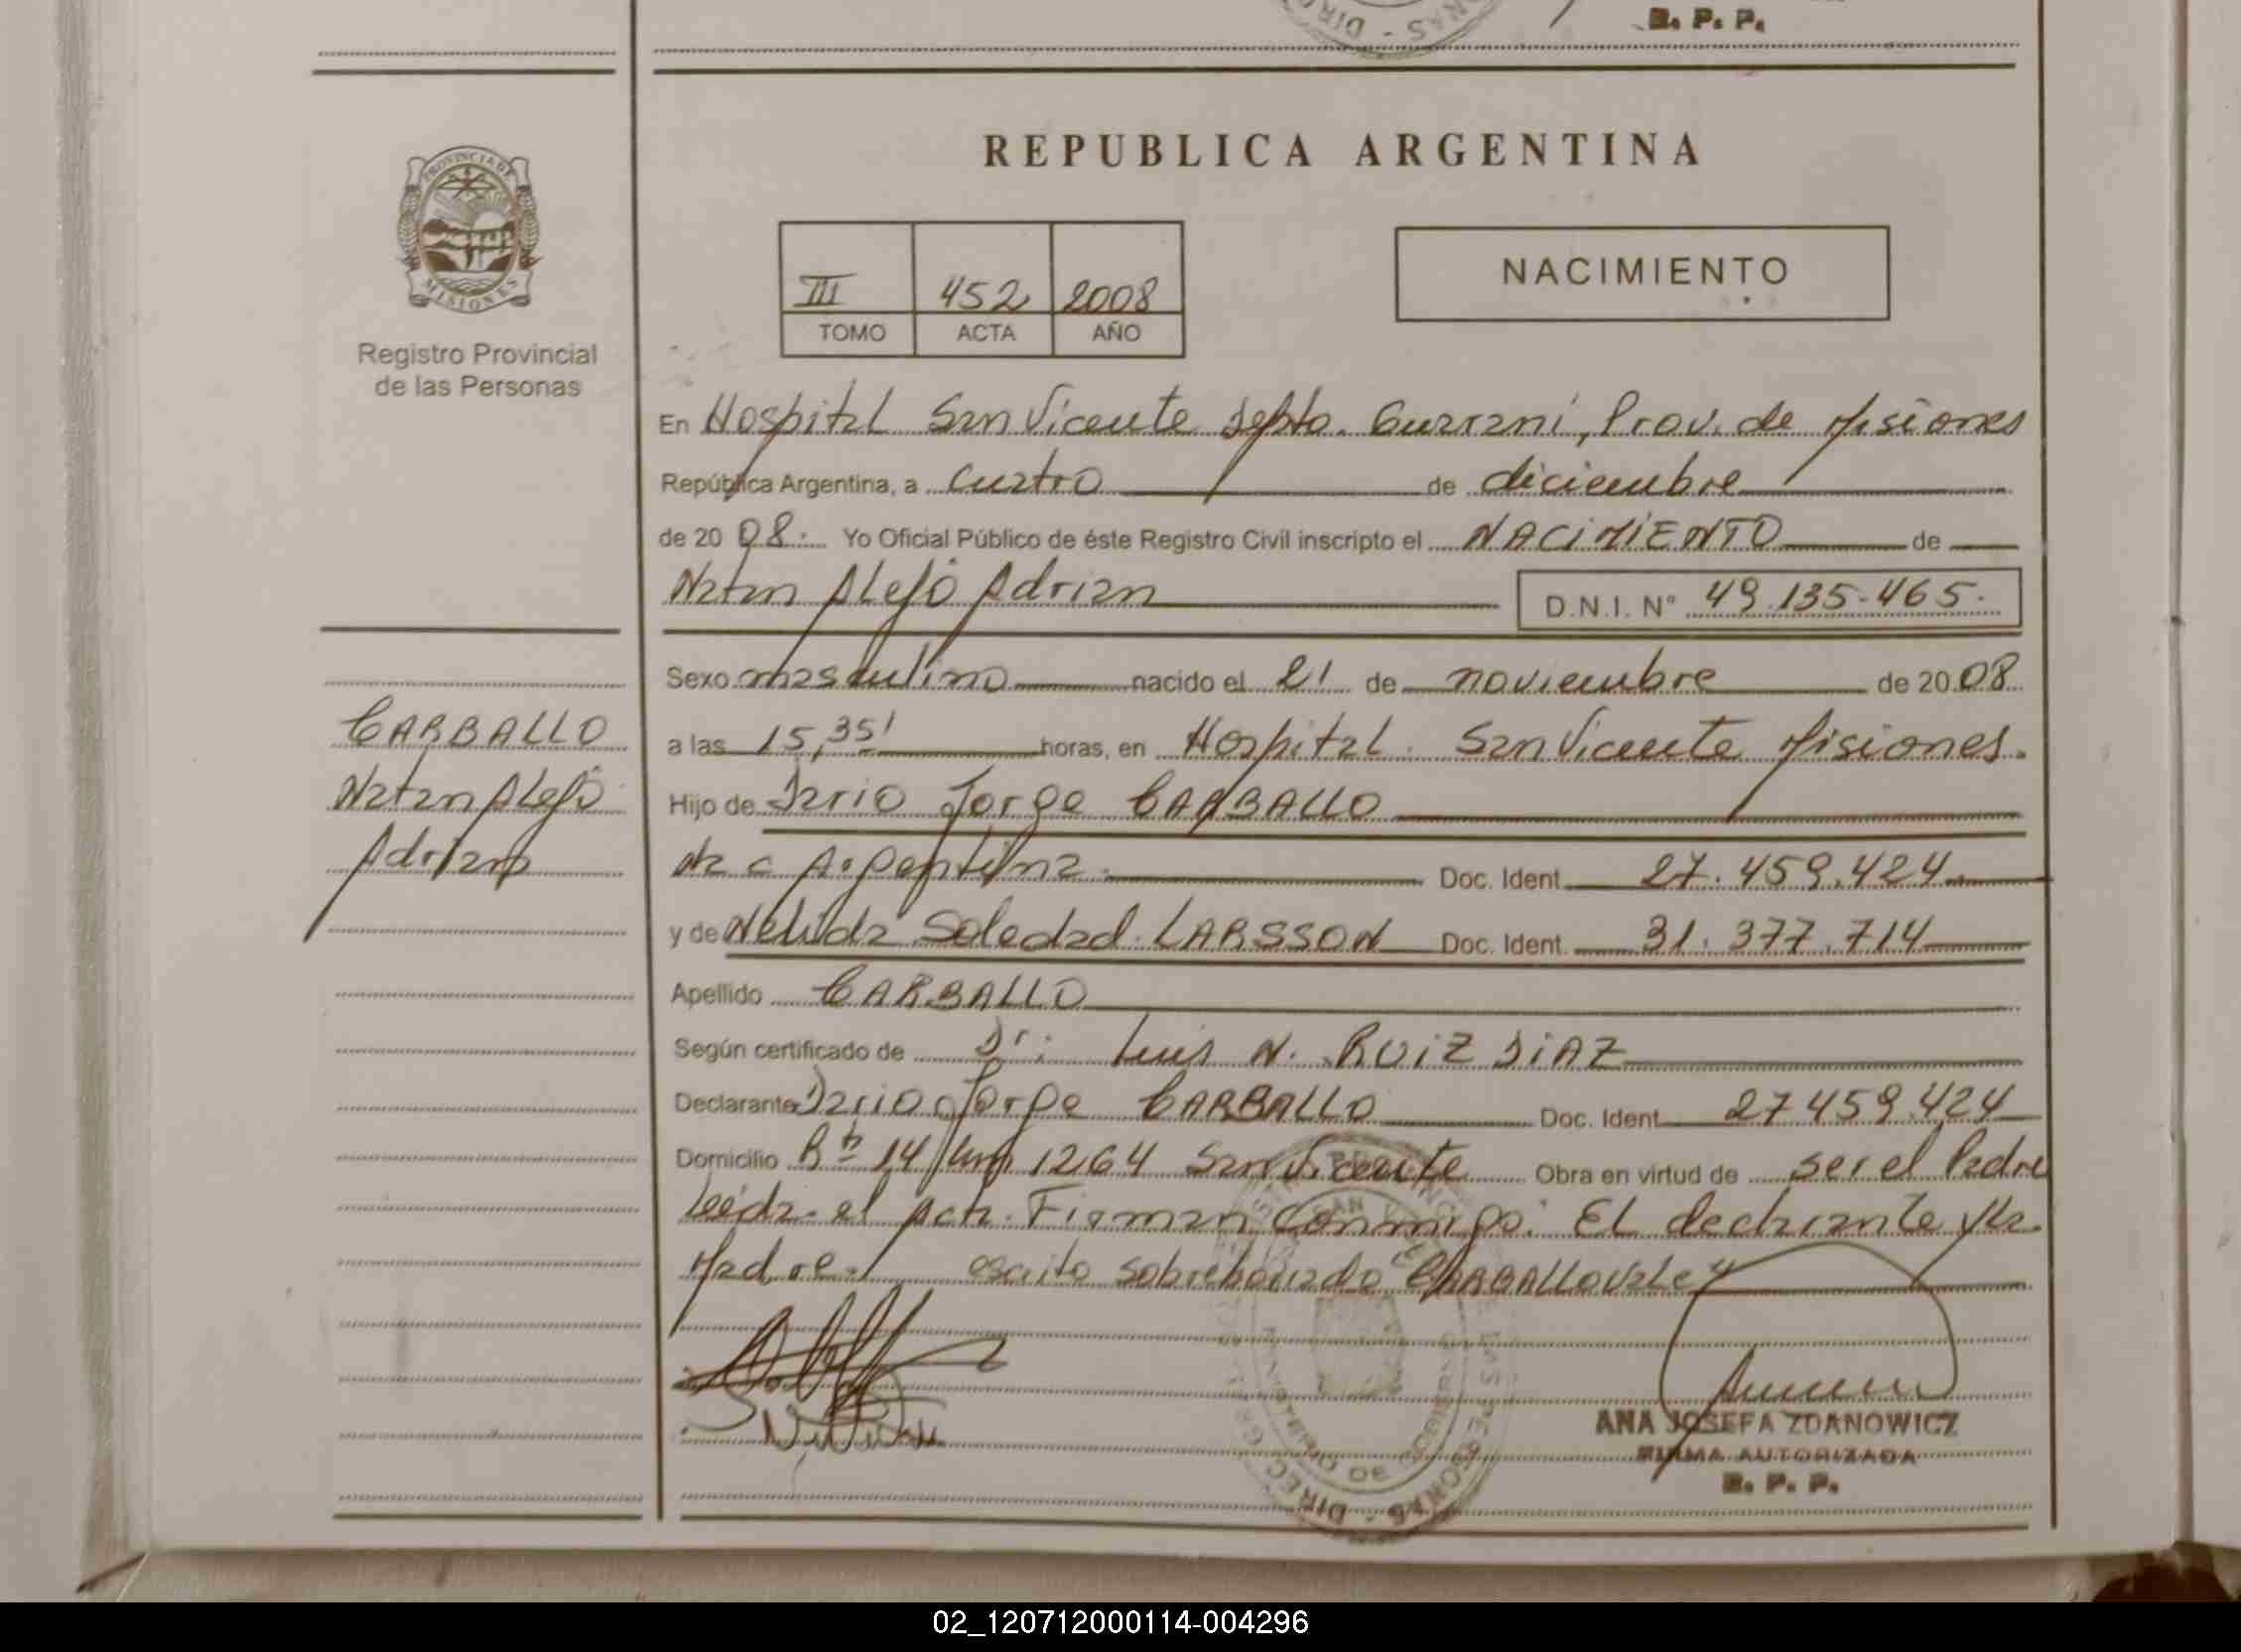 DIRECCION - PERSONAS
R. P. P.
REPUBLICA ARGENTINA
PROVINCIA DE MISIONES
Registro Provincial
de las Personas
III 452 2008
TOMO ACTA AÑO
NACIMIENTO
En Hospital San Vicente Depto. Guarani, Prov. de Misiones
República Argentina, a cuatro de diciembre
de 2008. Yo Oficial Público de éste Registro Civil inscripto el NACIMIENTO de
Natan Alejo Adrian D.N.I. N° 49.135.465.
Sexo masculino nacido el 21 de noviembre de 2008
CARBALLO
Natan Alejo
Adrian
a las 15,35' horas, en Hospital San Vicente Misiones.
Hijo de Dario Jorge CARBALLO
Nac Argentina. Doc. Ident. 27.459.424
y de Nelida Soledad LARSSON Doc. Ident. 31.377.714
Apellido CARBALLO
Según certificado de Dr: Luis N. RUIZ DIAZ
Declarante Dario Jorge CARBALLO Doc. Ident. 27459.424
Domicilio Rta 14 km 1264 San Vicente Obra en virtud de ser el Padre
Leida el Acta. Firman conmigo: El declarante y la
Madre. escrito sobreborrado "CARBALLO Vale"
ANA JOSEFA ZDANOWICZ
FIRMA AUTORIZADA
R. P. P.
02_120712000114-004296